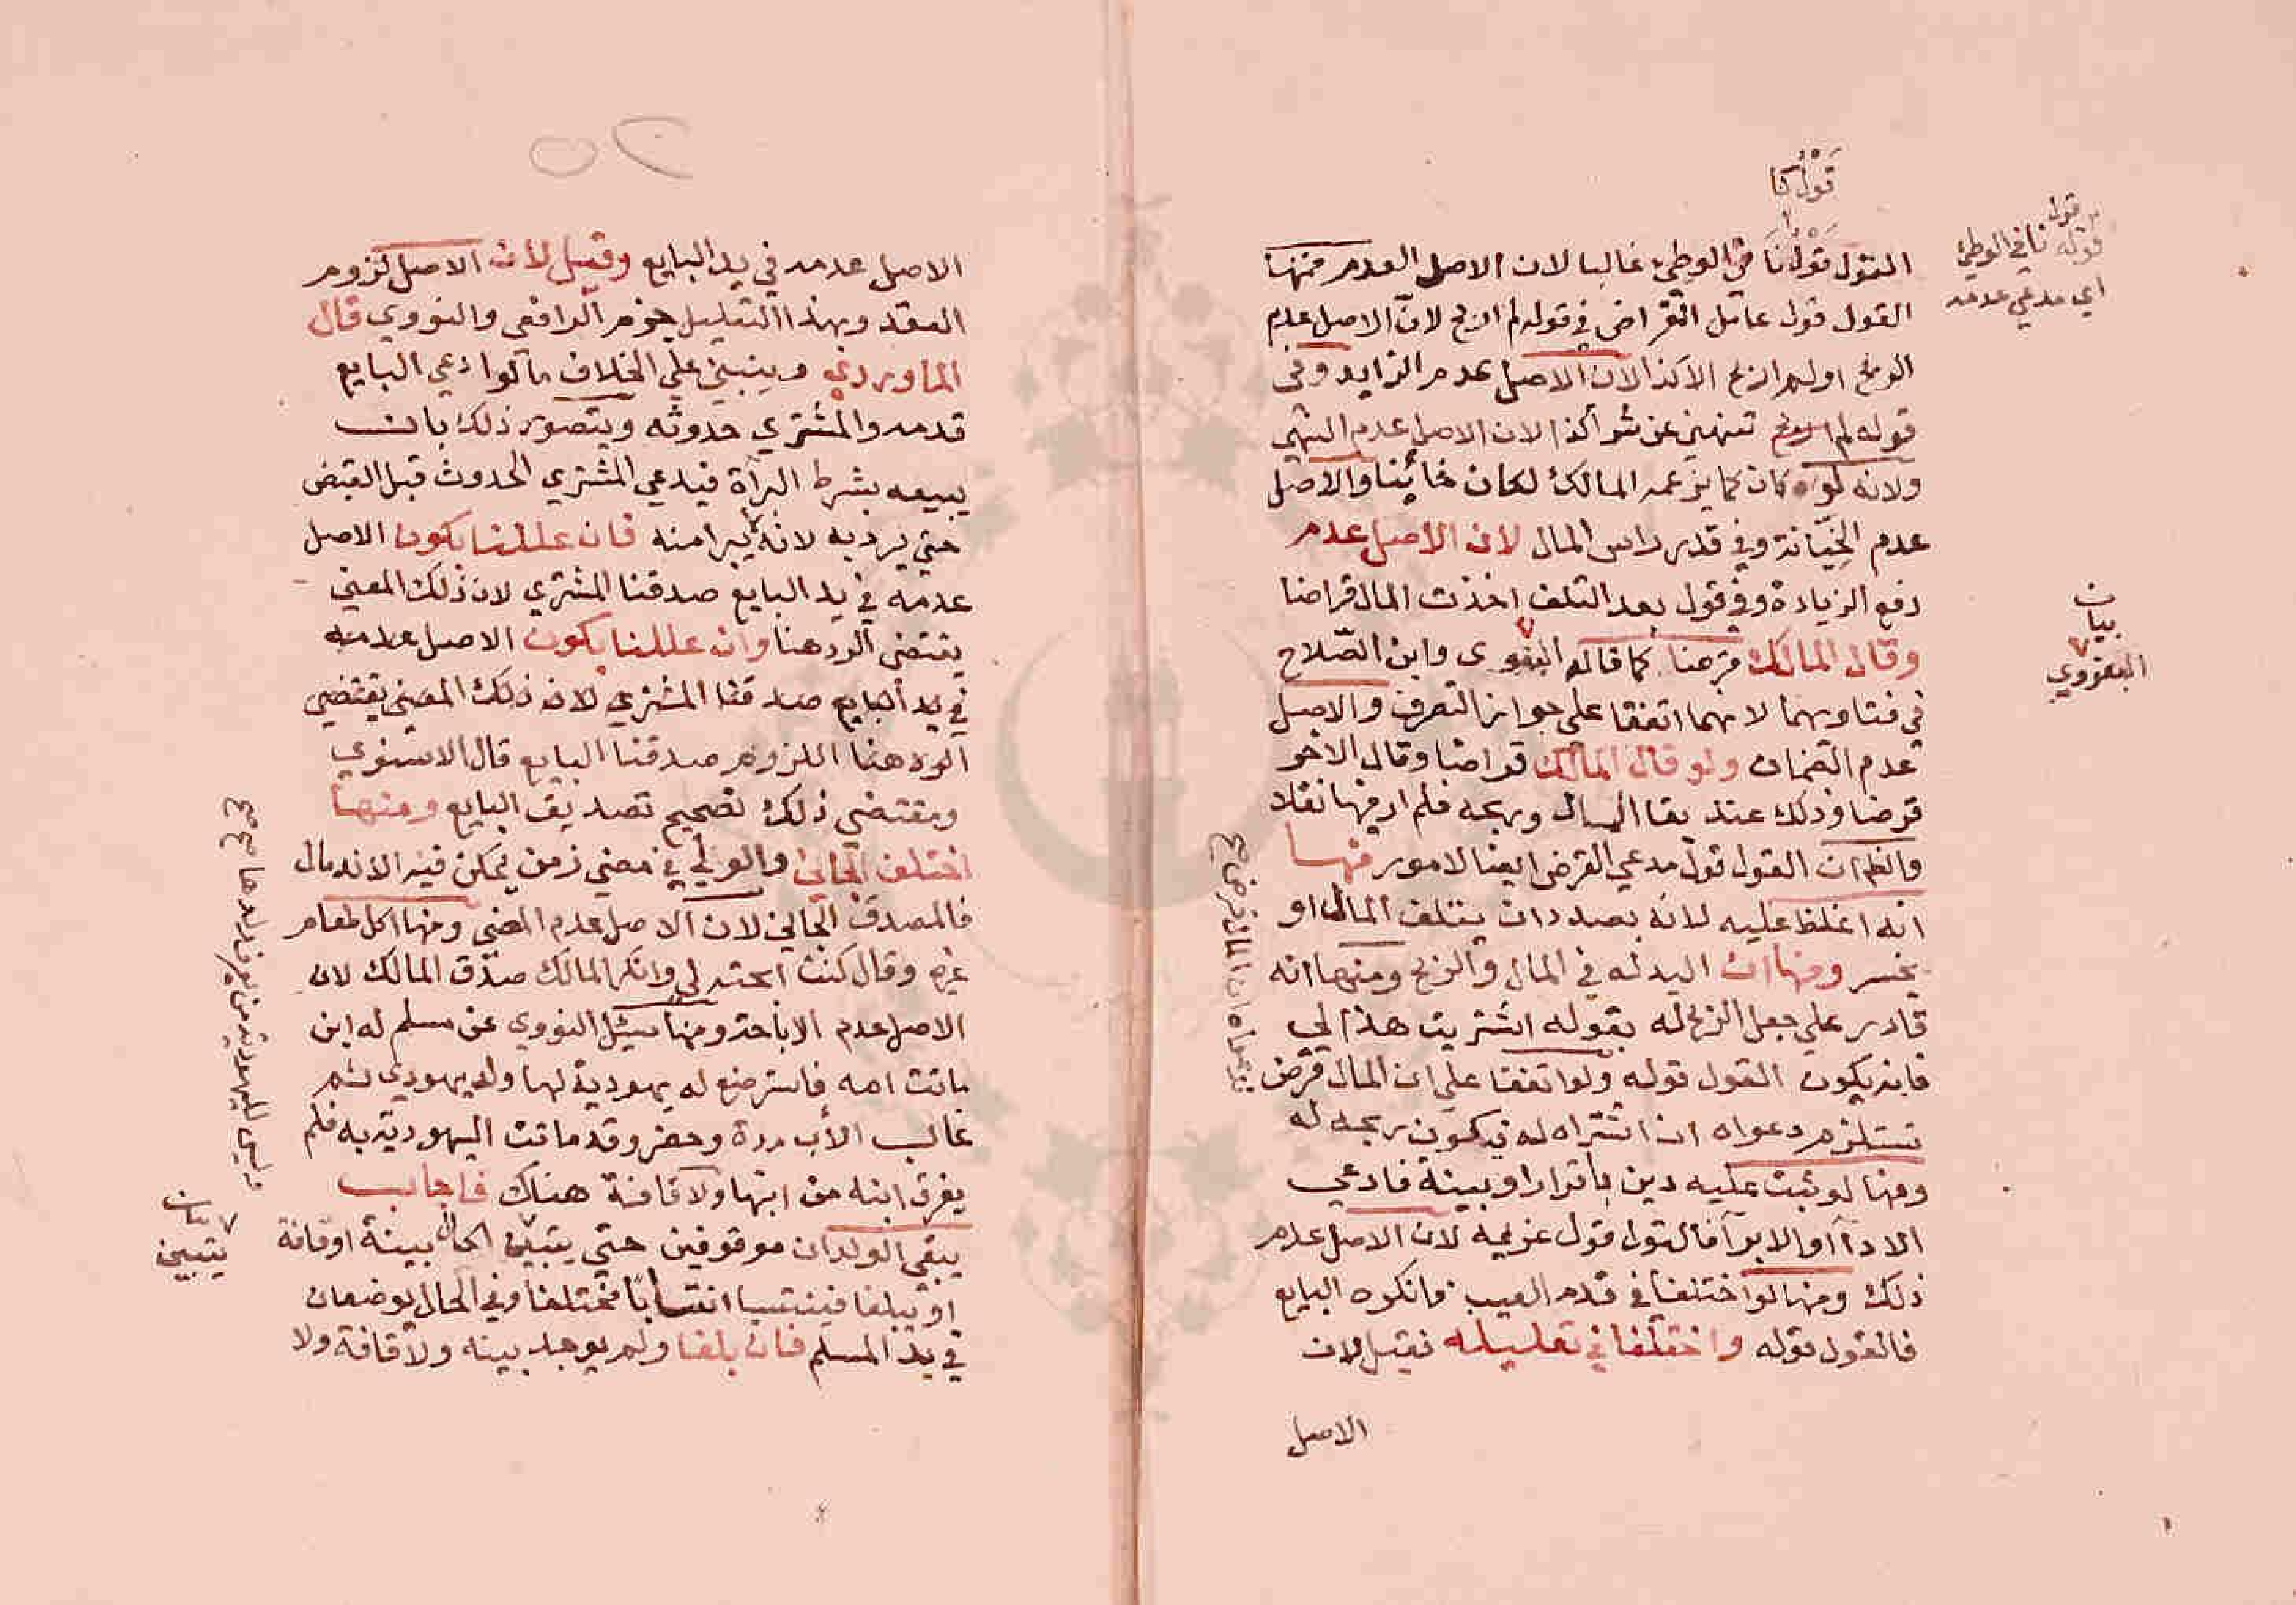 قولنا
القول قولنا في الوطئ غالبا لان الاصل العدم فمنها
القول قول عامل القراض في قوله لم اربح لان الاصل عدم
الربح او لم اربح الا كذا لان الاصل عدم الزايد وفي
قوله لم تنهني عن شراكذا لان الاصل عدم النهي
ولانه لو كان كما يزعمه المالك لكان خائنا والاصل
عدم الخيانة وفي قدر راس المال لان الاصل عدم
دفع الزيادة وفي قول بعد التلف اخذت المال قراضا
وقال المالك قرضنا كما قاله البغوى وابن الصلاح
في فتاويهما لانهما اتفقا على جواز التصرف والاصل
عدم الضمان ولو قال المالك قراضا وقال الاخر
قرضا وذلك عند بقا المال وربحه فلم ار فيها نقلا
والظ ان القول قول مدعي القرض ايضا لامور منها
انه اغلظ عليه لانه بصدد ان يتلف المال او
يخسر ومنها ان اليد له في المال والربح ومنها انه
قادر علي جعل الربح له بقوله اشتريت هذا لي
فانه يكون القول قوله ولو اتفقا علي ان المال قرض
تستلزم دعواه انه اشتراه له فيكون ربحه له
ومنها لو ثبت عليه دين باقرار او بينة فادعي
الاداآ او الابرآ فالقول قول غريمه لان الاصل عدم
ذلك ومنها لو اختلفا في قدم العيب فانكره البايع
فالقول قوله واختلفا في تعليله فقيل لان
الاصل
قول
قوله نافي الوطئ
اي مدعي عدمه
بيان
البغوي
الاصل عدمه في يد البايع وقيل لان الاصل لزوم
العقد وبهذا التعليل جزم الرافعي والنووي قال
الماوردي وينبني علي الخلاف ما لو ادعي البايع
قدمه والمشتري حدوثه ويتصور ذلك بان
يبيعه بشرط البراة فيدعي المشتري الحدوث قبل القبض
حتي يرد به لانه لا يبرا منه فان عللنا بكون الاصل
عدمه في يد البايع صدقنا المشتري لان ذلك المعني
يقتضي الرد هنا وان عللنا بكون الاصل عدمه
في يد البايع صدقنا المشتري لان ذلك المعني يقتضي
الرد هنا اللزوم صدقنا البايع قال الاسنوي
ومقتضي ذلك تصحيح تصديق البايع ومنها
اختلف الجاني والولي في مضي زمن يمكن فيه الاندمال
فالمصدق الجاني لان الاصل عدم المضي ومنها اكل طعام
غيره وقال كنت ابحته لي وانكر المالك صدق المالك لان
الاصل عدم الاباحة ومنها سئل النووي عن مسلم له ابن
ماتت امه فاسترضع له يهودية لها ولد يهودي ثم
غاب الاب مدة وحضر وقد ماتت اليهودية فلم
يعرف ابنه من ابنها ولا قافة هناك فاجاب
يبقي الولدان موقوفين حتي يتبين الحال ببينة او قافة
او يبلغا فينتسبا انتسابا مختلفا وفي الحال يوضعان
في يد المسلم فان بلغا ولم يوجد بينه ولا قافة ولا
بيان
يتبين